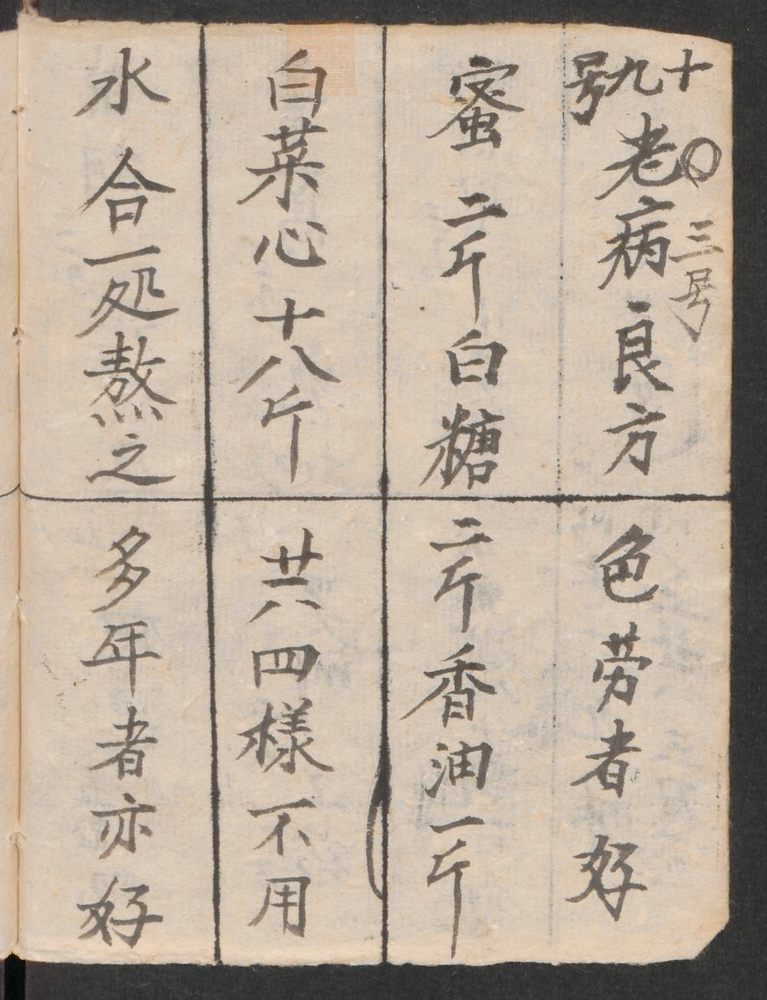 十九号
○三号
老病良方色劳者好
蜜二斤白糖二斤香油一斤
白菜心十八斤共四樣不用
水合一処熬之多年者亦好